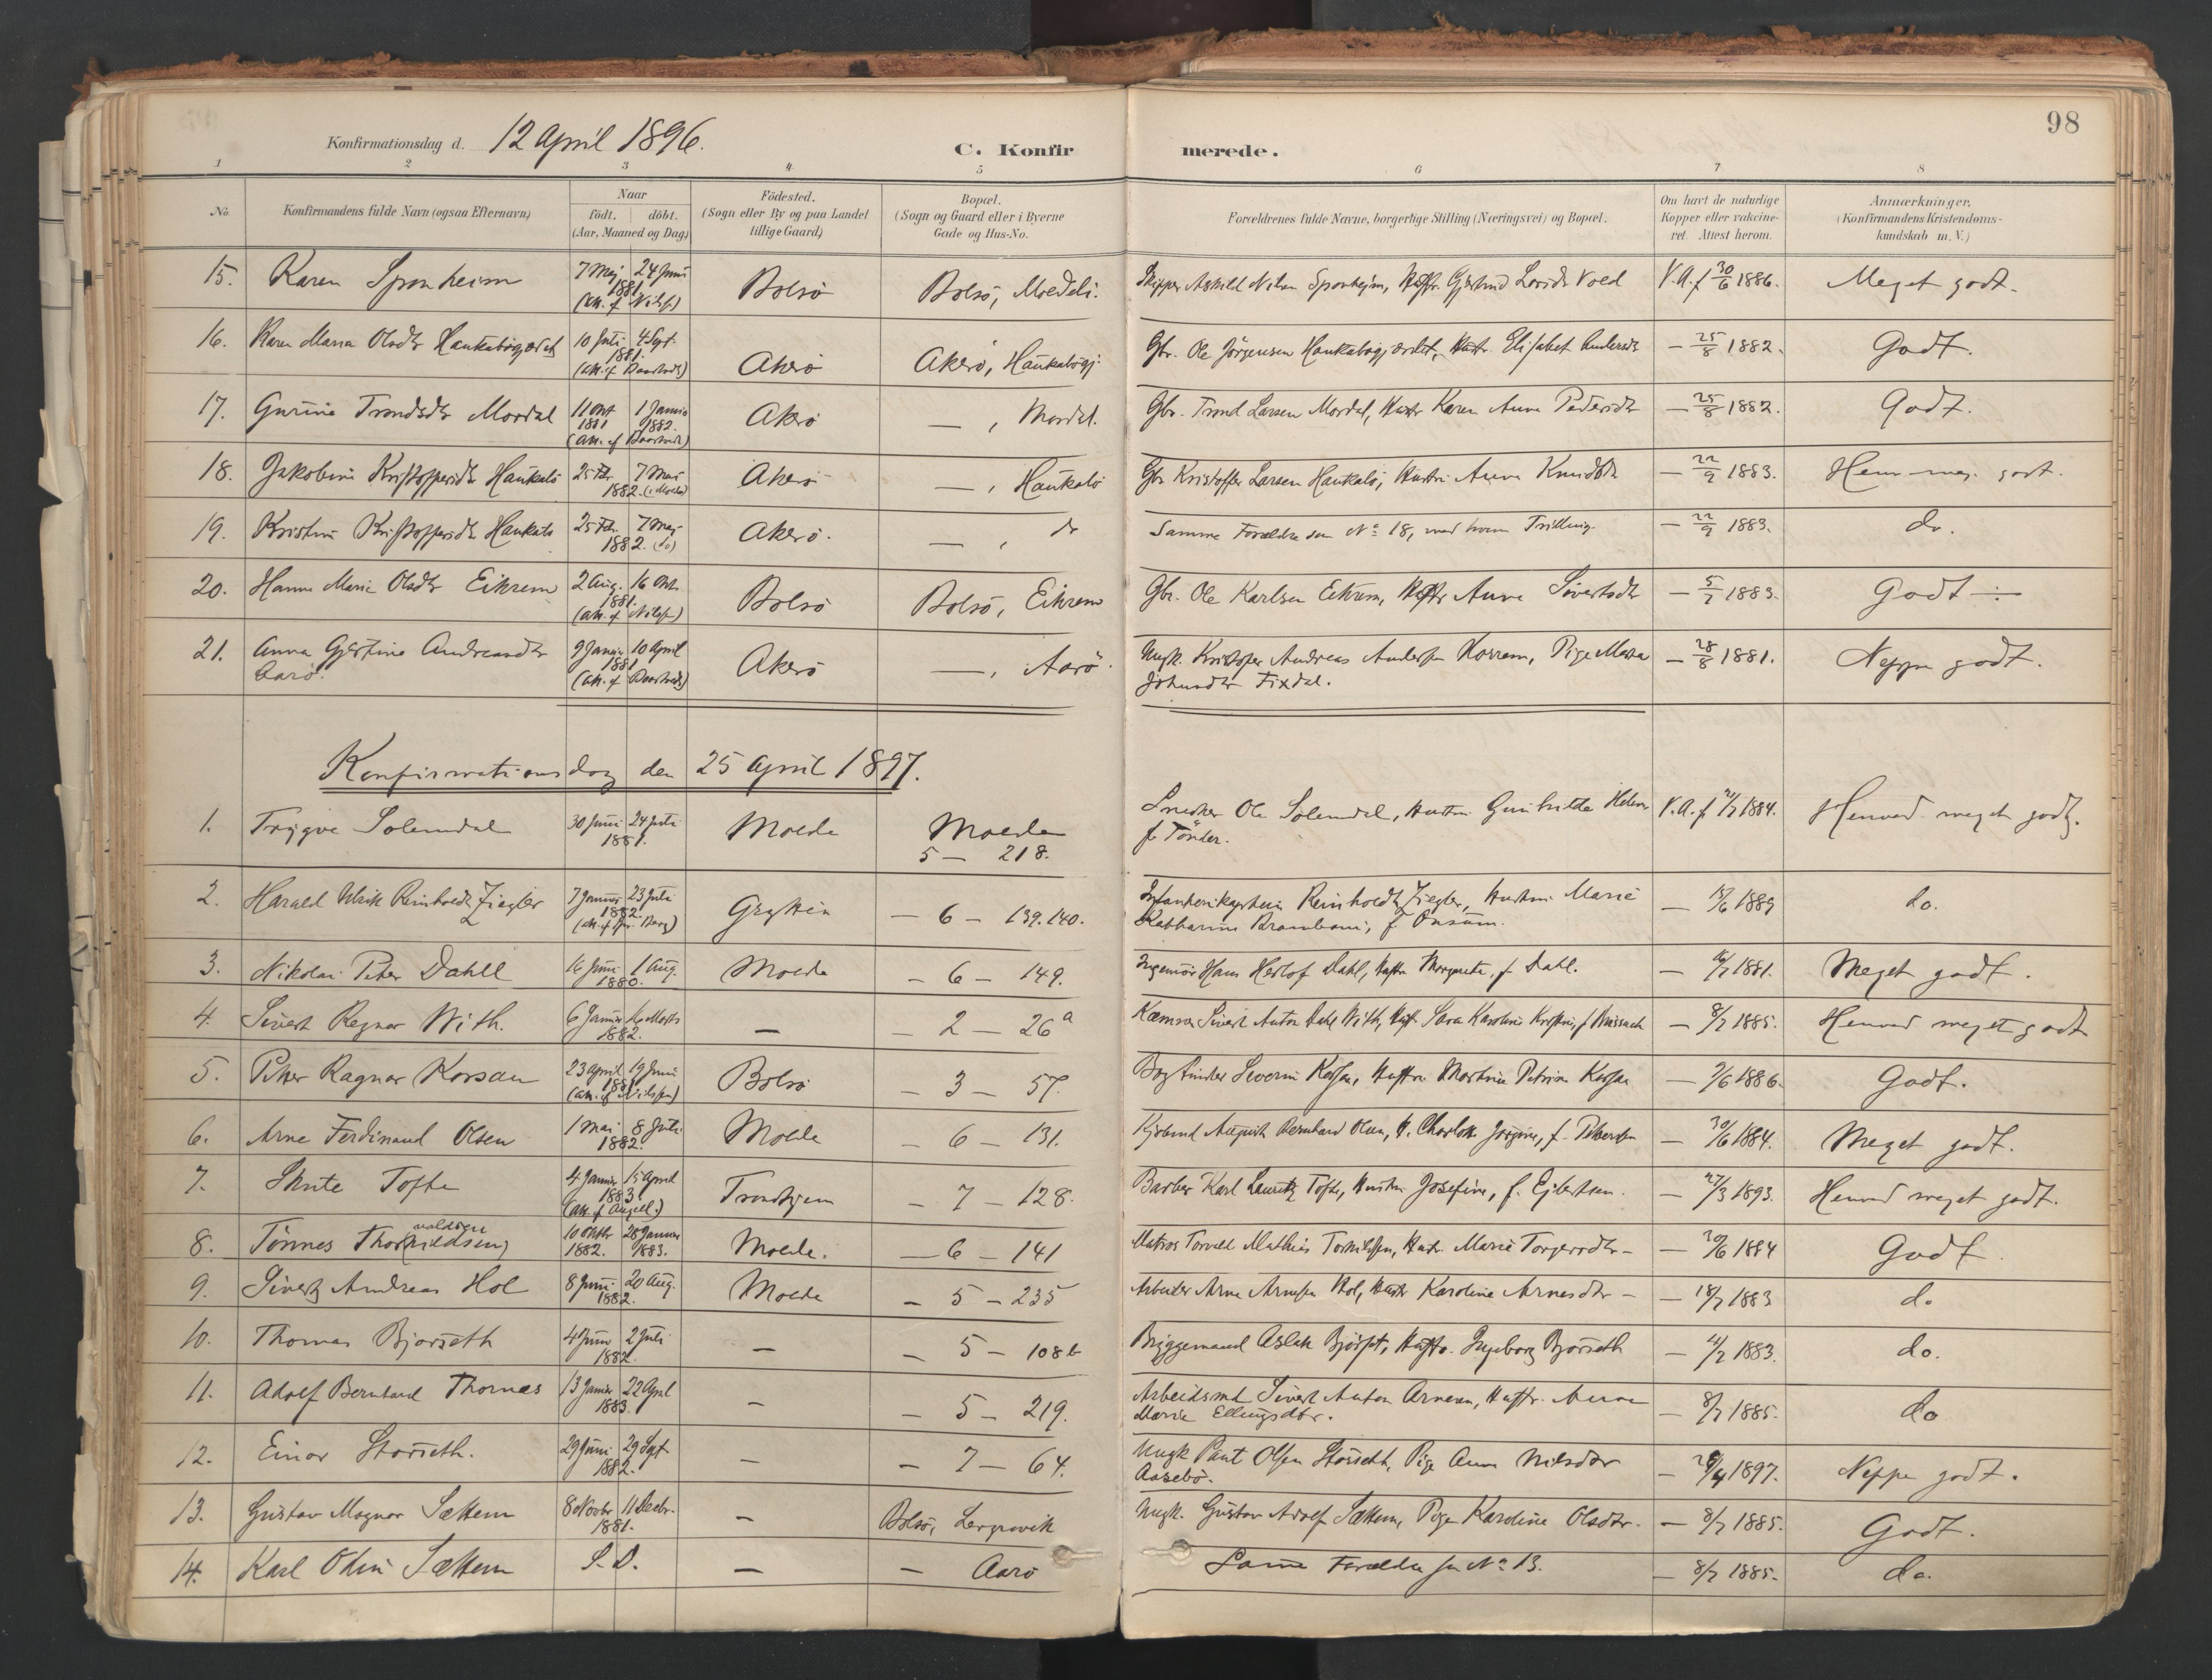 98
Konfirmationsdag d. 12 April 1896.
C. Konfirmerede.
1 2 3 4 5 6 7 8
No. Konfirmandens fulde Navn (ogsaa Efternavn) Naar födt. döbt. (Aar, Maaned og Dag) Födested. (Sogn eller By og paa Landet tillige Gaard) Bopæl. (Sogn og Gaard eller i Byerne Gade og Hus-No. Forældrenes fulde Navne, borgerlige Stilling (Næringsvei) og Bopæl. Om havt de naturlige Kopper eller vaccineret. Attest herom. Anmærkninger. (Konfirmandens Kristendomskundskab m. V.)
15. Karen Sponheim 7 Maj 24 Juni 1881. Bolsö Bolsö, Moedeli. Skipper Askild Nilsen Sponheim, V.A. f 30/6 1886. Meget godt.
16. Karen Marna Olsdtr Haukabögjærdet 10 Juli 4 Sept. 1881. Akerö Akerö, Haukabögj. Gbr. Ole Jörgensen Haukabögjærdet, Hustr. Elisabet Andersdtr — 25/8 1882. Godt.
17. Gurine Trondsdtr Mordal 11 Okt 1881 1 Januar 1882. Akerö — , Mordal. Gbr. Trond Larsen Mordal, Hustr Karen Anna Pedersdtr — 25/8 1882. Godt.
18. Jakobine Kristoffersdtr Haukabö 25 Fbr. 7 Mai 1882. Akerö — , Haukabö Gbr Kristoffer Larsen Haukabö, Hustru Anna Knudsdtr — 22/9 1883. Henv. meg. godt.
19. Kristine Kristoffersdtr Haukabö 25 Fbr. 7 Maj 1882. (do) Akerö. — , do Samme Forældre som No 18, med hvem Tvilling. — 22/9 1883. do.
20. Hanna Marie Olsdtr Eikrem 2 Aug. 16 Okt. 1881. Bolsö Bolsö, Eikrem Gbr. Ole Karlsen Eikrem, Hustr Anna Sivertsdtr — 5/7 1883. Godt ÷
21. Anna Gjertine Andreasdtr Aarö. 9 Januar 10 April 1881 Akerö — , Aarö. Ungk. Kristofer Andreas Andersen Horrem, Pige Marta Johansdtr Fixdal. — 28/8 1881. Neppe godt.
Konfirmationsdag den 25 April 1897.
1. Trygve Solemdal 30 Juni 24 Juli 1881. Molde Molde 5 — 218. Snedker Ole Solemdal, Hustru Gunhilda Helene f. Tönder. V.A. f 1884. Henved meget godt.
2. Harald Ulrik Reinholdt Ziegler 7 Januar 23 Juli 1882. — 6 — 139.140. Infanterikaptein Reinholdt Ziegler, Hustru Marie Katharine f. Onsum. — 15/6 1889 do.
3. Nikolai Peter Dahll 16 Juni 1 Aug. 1880. Molde — 6 — 149. Ingeniör Hans Herlof Dahl, Hustru Margrete, f. Dahl. 1881. Meget godt.
4. Sivert Regnar With. 6 Januar Marts 1882. — — 2 — 26a Kæmner Sivert Anton Dahl With, Hust. Sara Karoline — 8/7 1885. Henved meget godt
5. Peter Ragnar Korsan 23 April 19 Juni 1881 Bolsö — 3 — 57. Bogbinder Severin Korsan, Hustru Martine Petrine Korsan — 9/6 1886. Godt.
6. Arne Ferdinand Olsen 1 Mai 8 Juli 1882. Molde — 6 — 131. August Bernhard Olsen, H. Charlotte Jörgine, f. Petersen — 30/6 1884. Meget godt.
7. Skute Tofte 4 Januar 15 April 1883 (att. f. Angell.) Trondhjem — 7 — 128. Barber Karl Lauritz Tofte, Hustru Josefine, f. Ejbertsen. — 27/3 1893. Henved meget godt.
8. Tönnes Thorvaldsen (hildsen) 10 Oktbr 1882. 28 Januar 1883. Molde. — 6 — 141 Matros Torvald Mathias Torkildsen, Hustr. Marie Torgersdtr — — 30/6 1884 Godt
9. Sivert Andreas Hol 8 Juni 20 Aug. 1882. Molde — 5 — 235 Arbeider Arne Arnesen Hol, Hustr Karoline Arnesdtr — — 18/7 1883 do
10. Thomas Bjorseth 4 Juni 2 Juli 1882. — — 5 — 108 b Bryggemand Aslak Bjorset, Hustr. Ingeborg Bjorseth — 4/7 1883. do.
11. Adolf Bernhard Thomas 13 Januar 22 April 1883. — — 5 — 219. Arbeidsmd Sivert Anton Arnesen, Hustr. Anna Marie Ellingsdtr. — 8/7 1885. do
12. Einar Storseth. 29 Juni 29 Sept. 1882. — — 7 — 64. Ungk Paul Olsen Storseth, Pige Anna Nilsdtr Aasebö. 1897. Neppe godt.
13. Gustav Magnar Sættem 8 Novbr 11 Decbr. 1881. — Bolsö, Lergrovik Ungk. Gustav Adolf Sættem, Pige Karoline Olsdtr. — 8/7 1885. Godt.
14. Karl Odin Sættem S. D. — — Aarö Samme Forældre som No 13. — 8/7 1885. do.